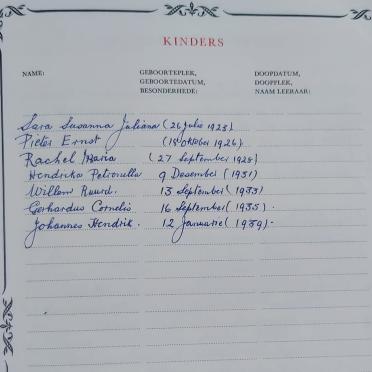 KINDERS
NAME: GEBOORTEPLEK, DOOPDATUM,
GEBOORTEDATUM, DOOPPLEK,
BESONDERHEDE: NAAM LEERAAR:
Sara Susanna Juliana (26 Julie 1923)
Pieter Ernst (18 Oktober 1926)
Rachel Maria (27 September 1928)
Hendrika Petronella 9 Desember (1931)
Willem Ruurd. 13 September (1933)
Gerhardus Cornelis 16 September (1935).
Johannes Hendrik. 12 Januarie (1939).